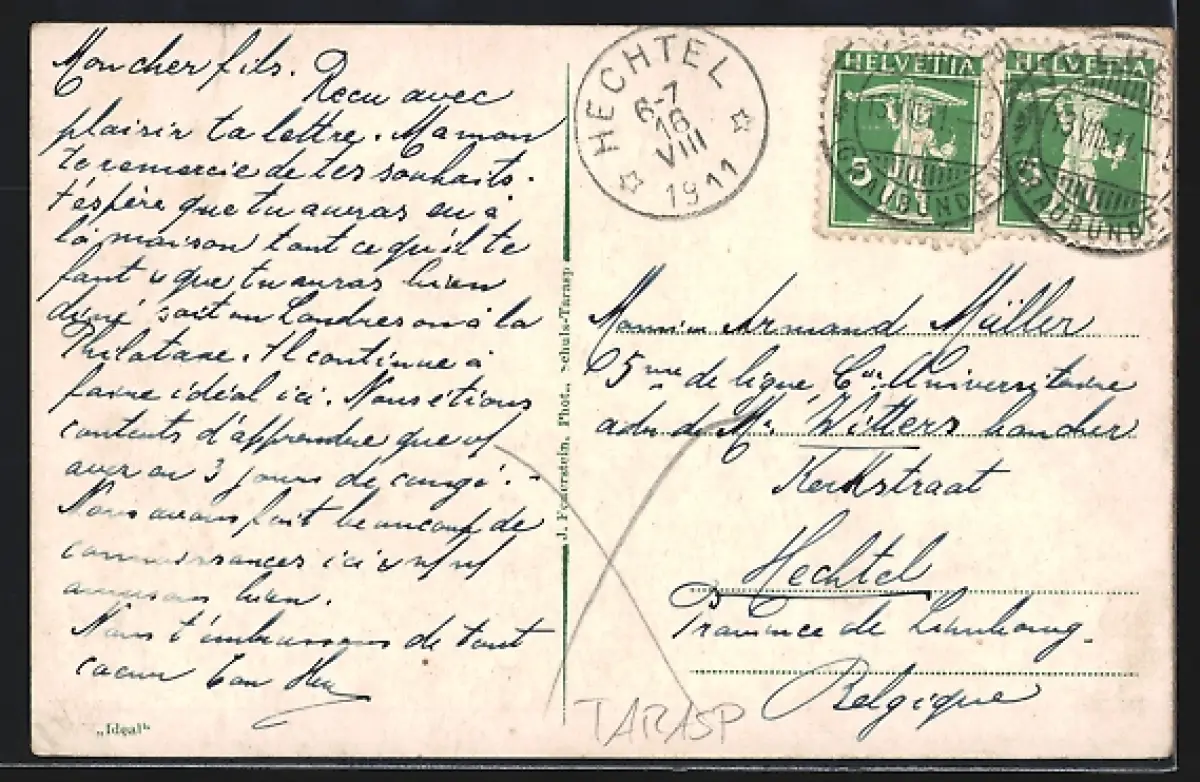 Mon cher fils.
Recu avec
plaisir ta lettre. Maman
te remercie de tes souhaits.
J'éspère que tu auras eu à
la maison tout ce qu'il te
faut & que tu auras bien
diné soit au Londres ou à la
Il continue à
faire idéal ici. Nous étions
contents d'apprendre que
3 jours de congé.
Nous avons fait beaucoup de
connaissances ici &
amusons bien.
Nous t'embrassons de tout
coeur ton
„Ideal"
J. Feuerstein, Phot., Schuls-Tarasp
HECHTEL
6-7
16
VIII
1911
HELVETIA
5
HELVETIA
5
GRAUBÜNDEN
13.VIII.11
Monsieur Armand Müller
5me de ligne, Cie. Universitaire
adr. de Mr Witters boucher
Kerkstraat
Hechtel
Province de Limbourg.
Belgique
TARASP